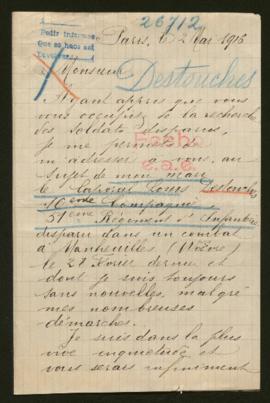 26712
Paris, le 2 Mai 1916
Monsieur
Destouches
Ayant appris que vous
vous occupez de la recherche
des Soldats disparus,
je me permets de
m'adresser à vous, au
sujet de mon mari
le Caporal Louis Destouches
10ème Compagnie,
51ème Régiment d'Infanterie
disparu dans un combat
à Manheulles (Woëvre)
le 27 Février dernier et
dont je suis toujours
sans nouvelles, malgré
mes nombreuses
démarches.
Je suis dans la plus
vive inquiétude et
vous serais infiniment